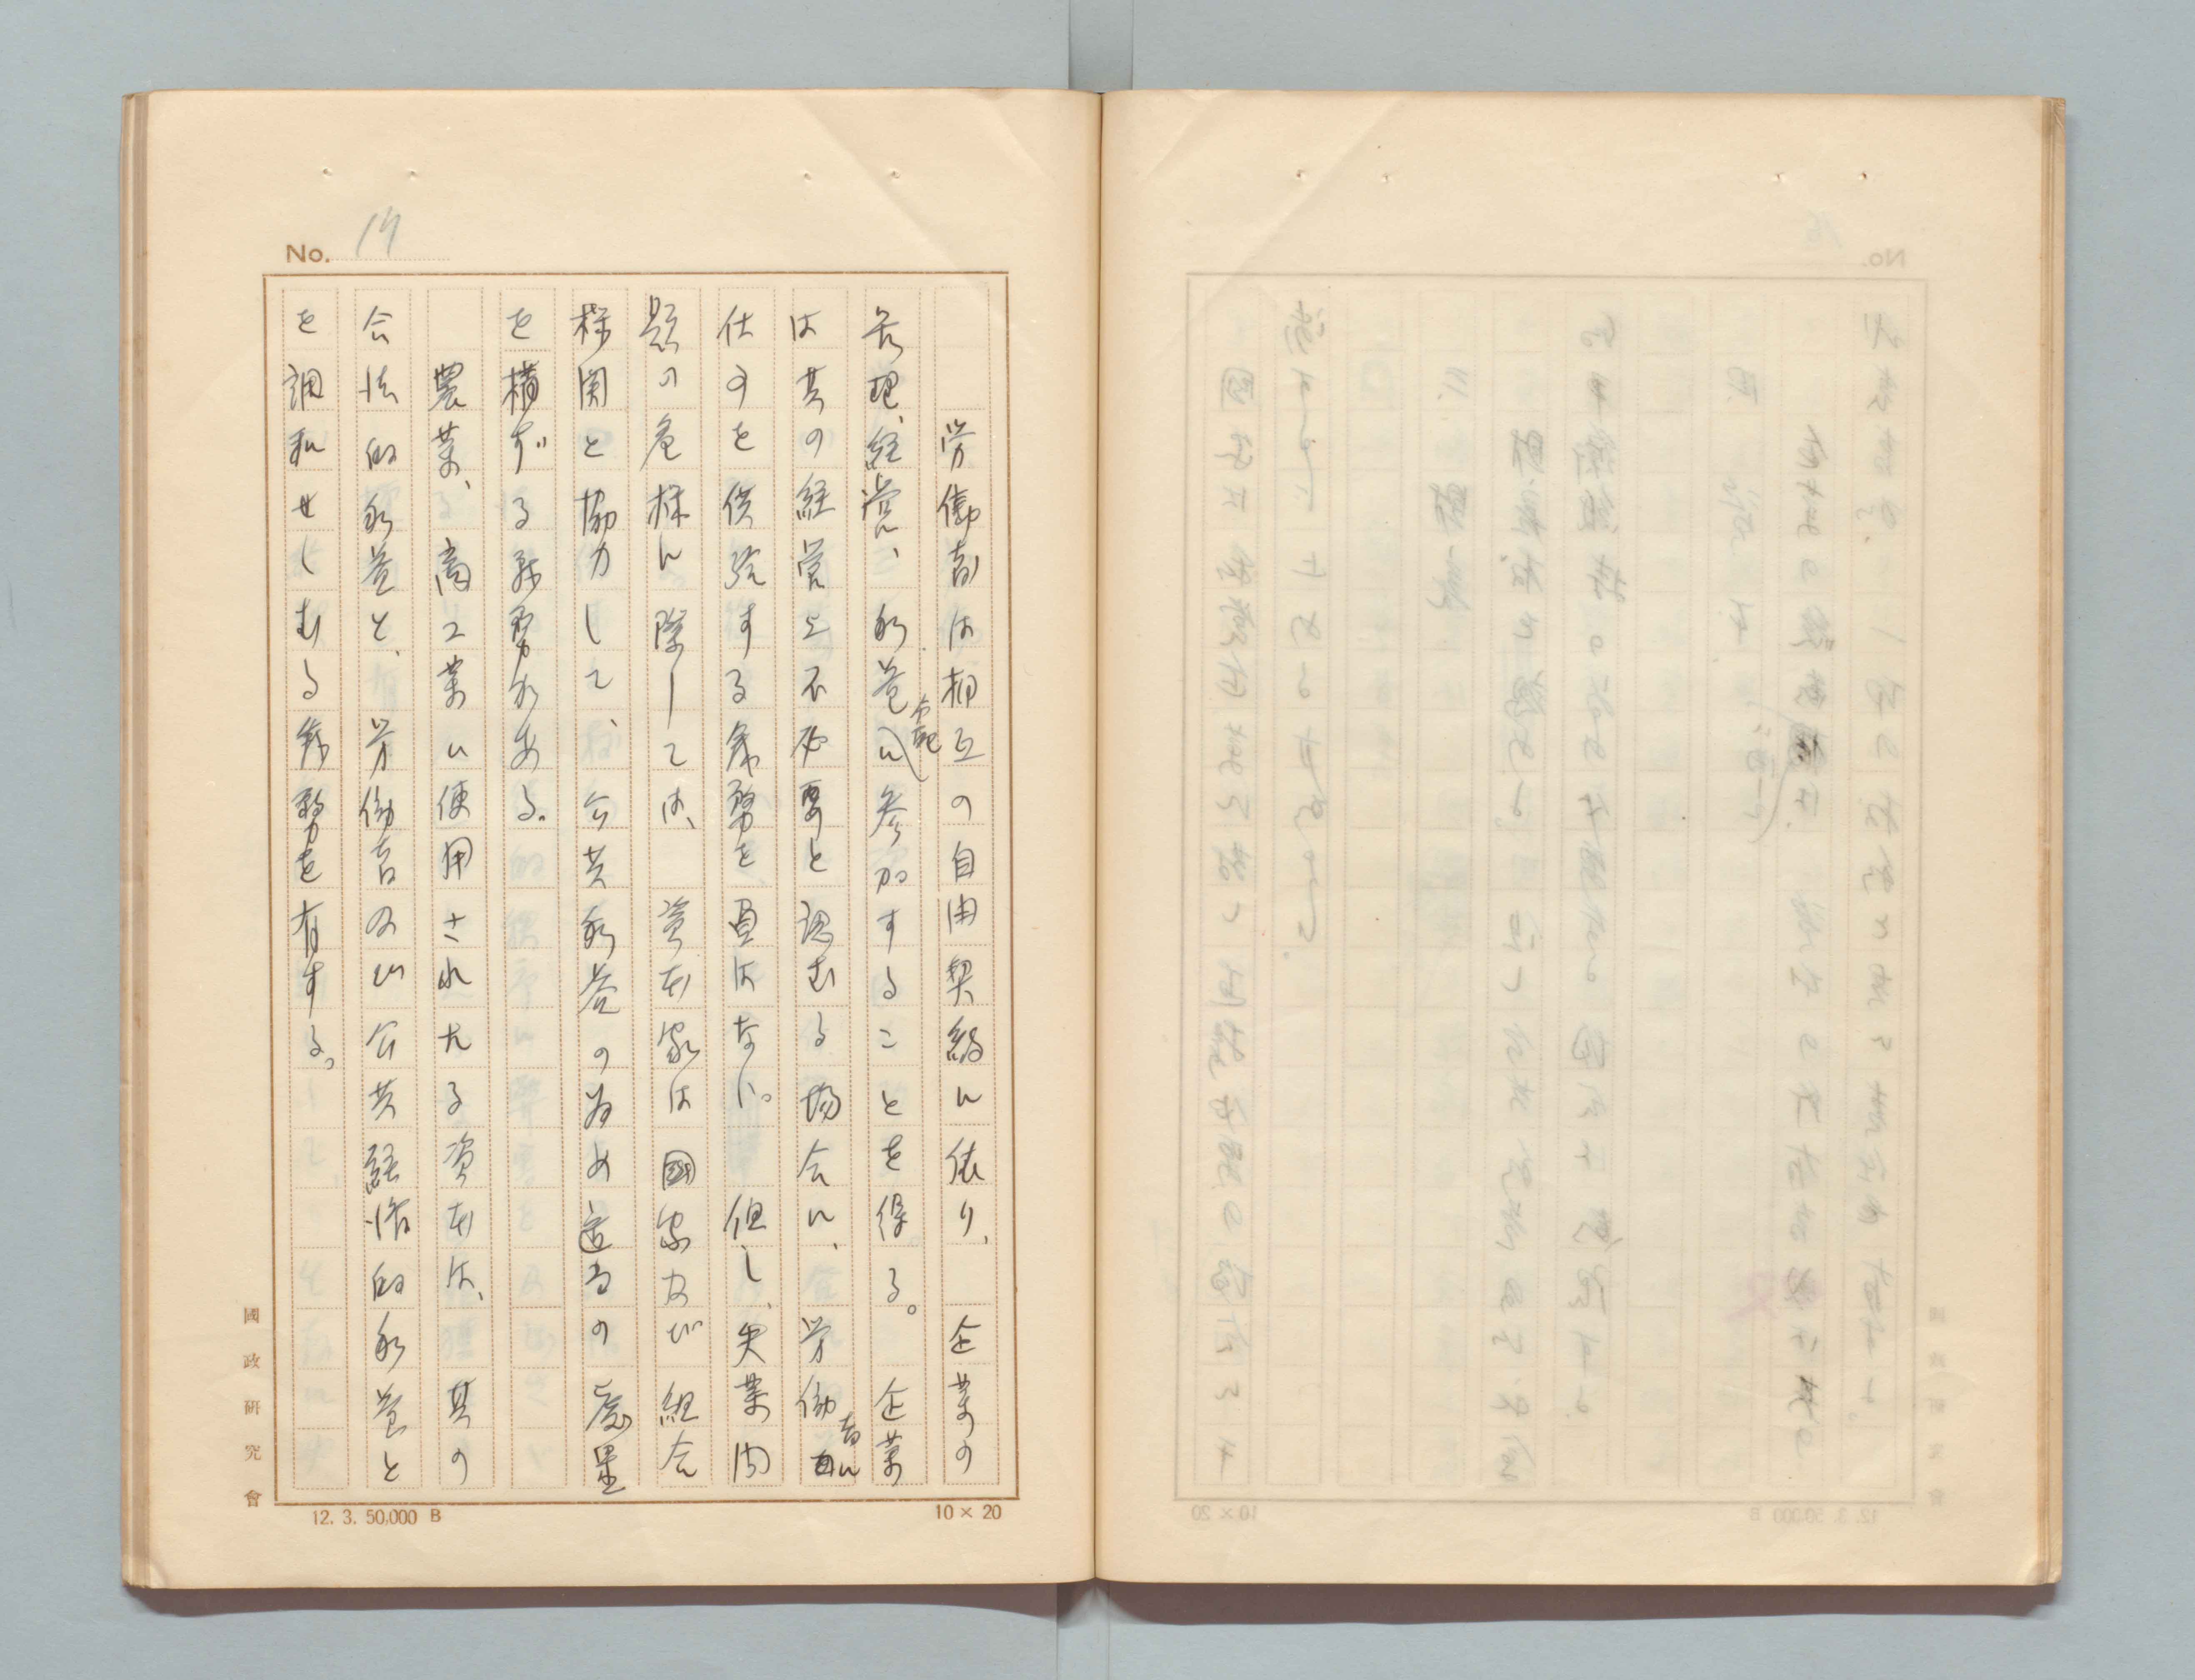 No. 19
労働者は相互の自由契約に依り、企業の
管理、経営、利益分配に参加することを得る。企業
は其の経営上不必要と認むる場合に、労働者に
仕事を供給する義務を負はない。但し、失業問
題の危機に際しては、資本家は国家及び組合
機関と協力して、公共利益の為め適当の處置
を構ずる義務がある。
農業、商工業に使用されたる資本は、其の
合法的利益と、労働者及び公共経済的利益と
を調和せしむる義務を有する。
國政研究會
12. 3. 50,000 B
10 × 20